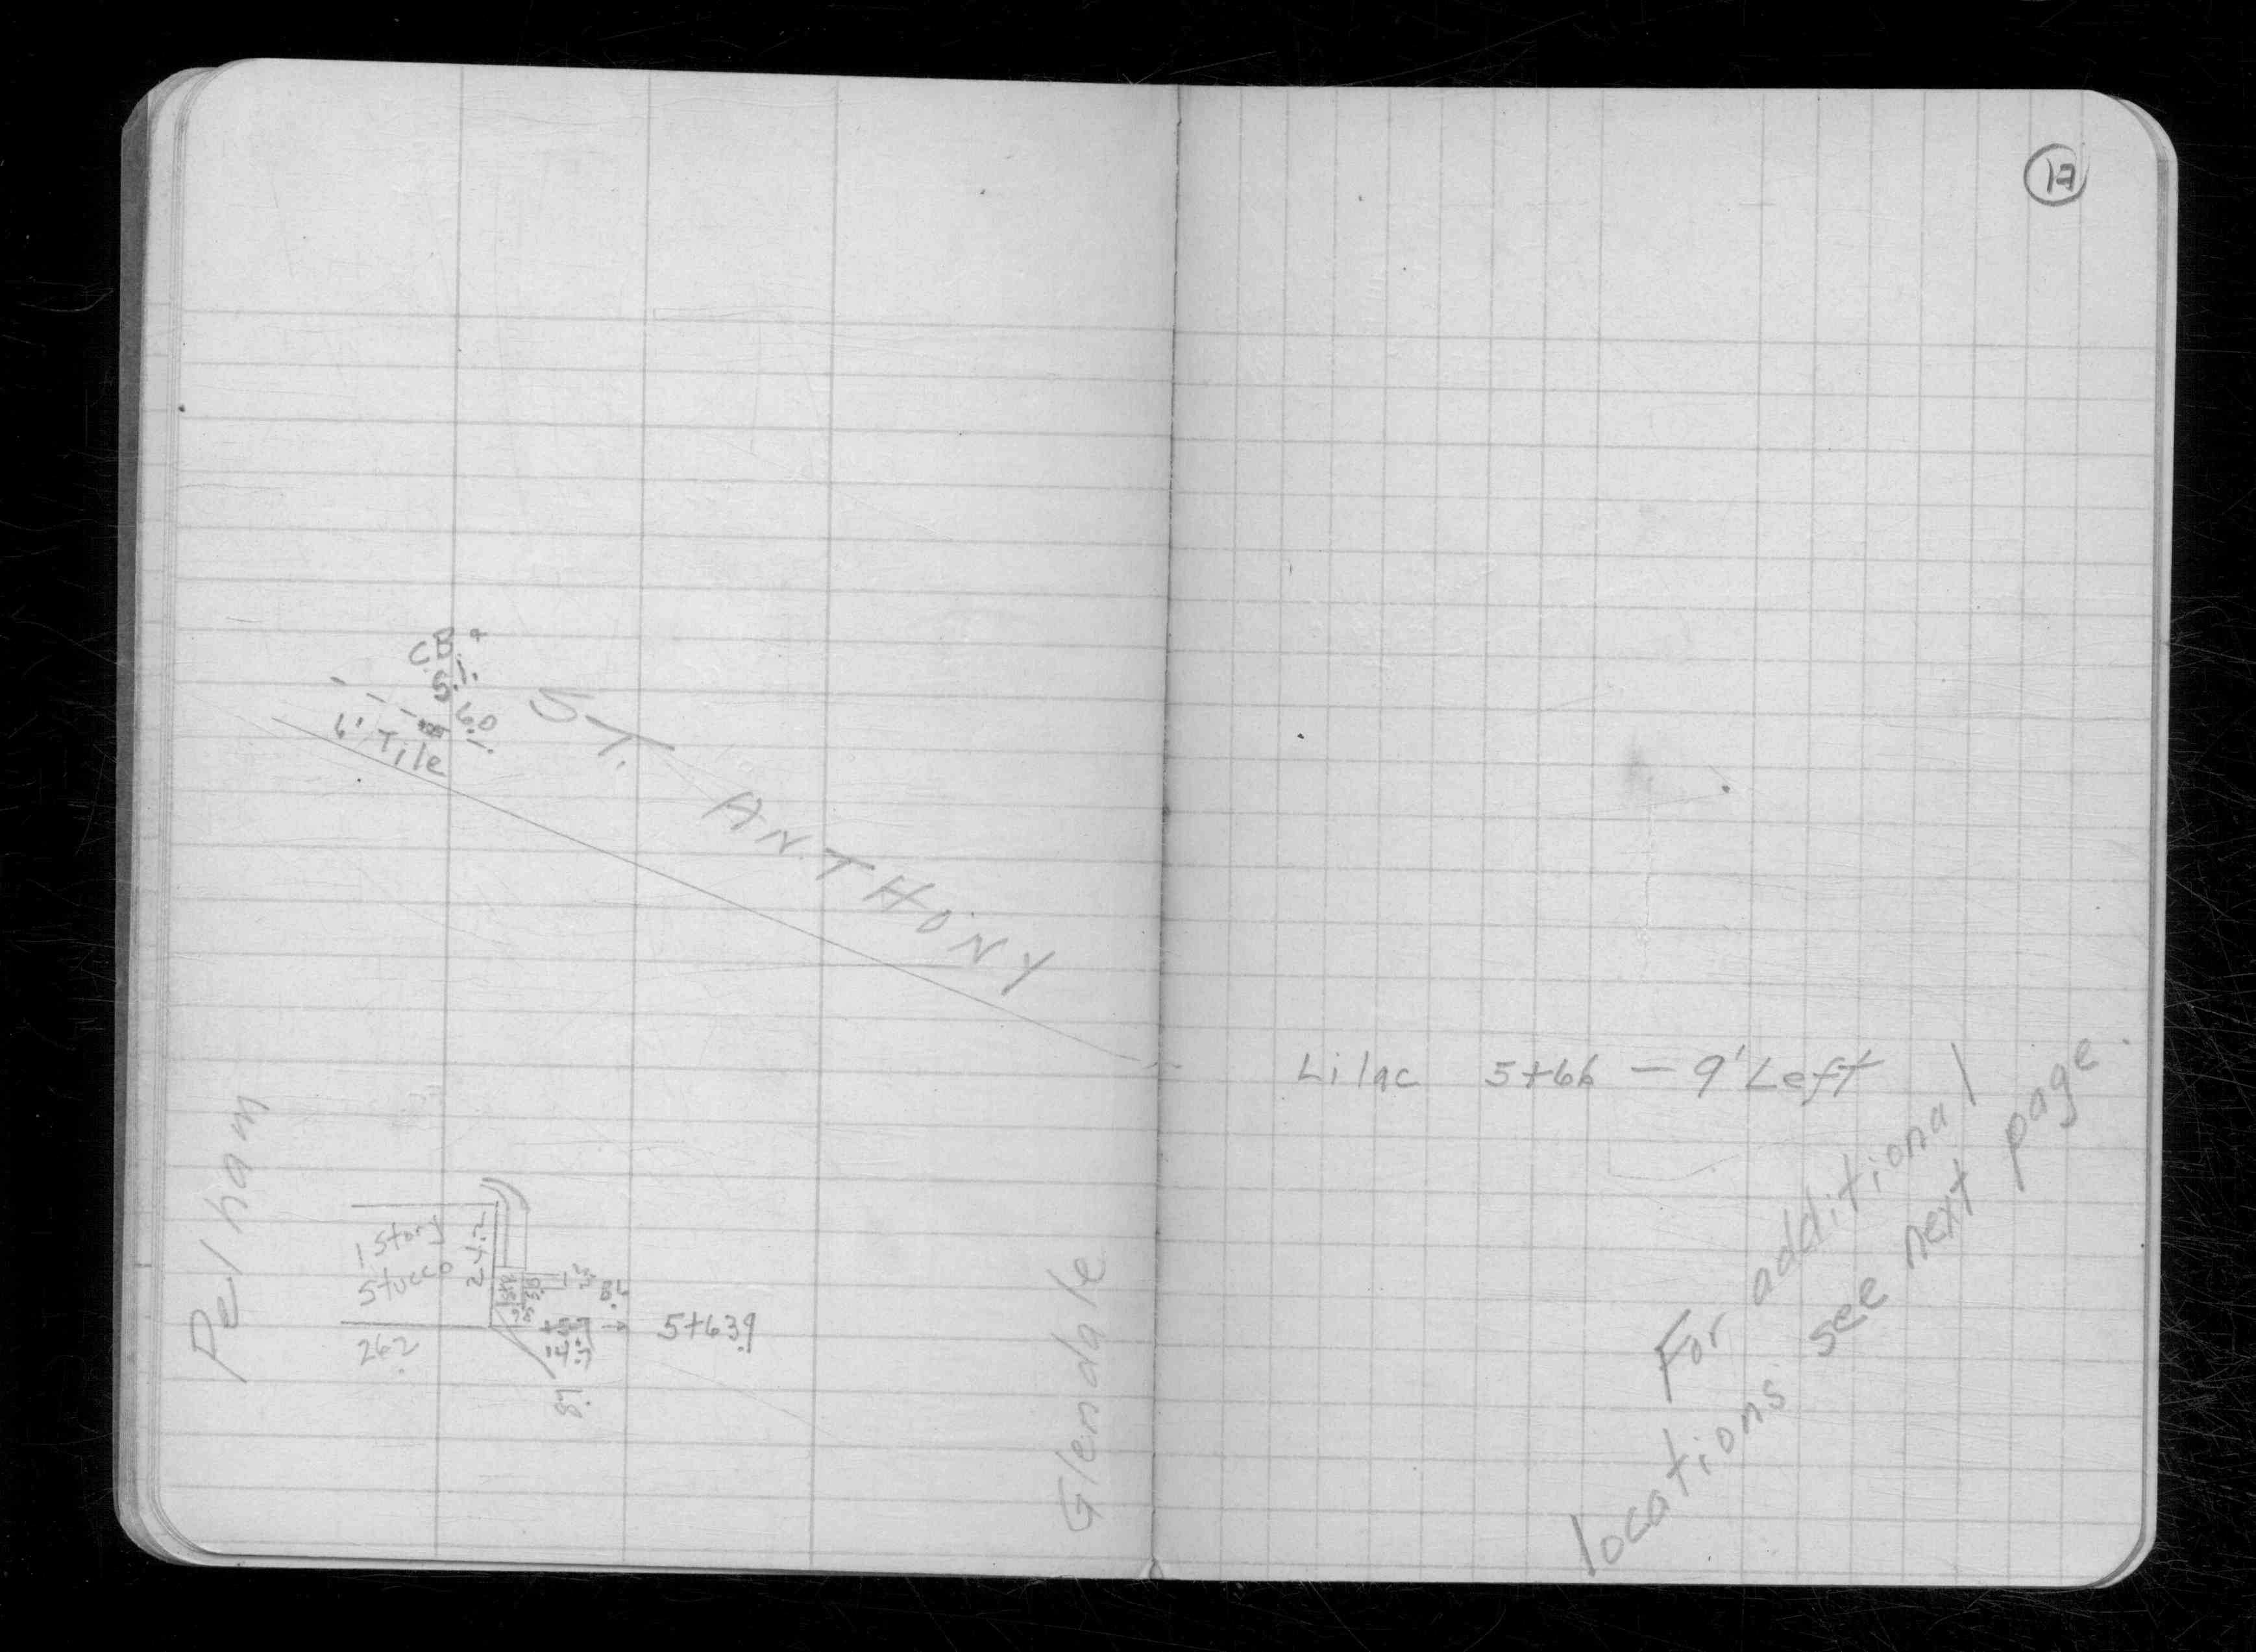 17
C.B. +
S.I.
60
6' Tile
ST. ANTHONY
Pelham
1 Story
Stucco
24.2
26.2
8.2
5+63.9
8.7
Glendale
Lilac 5+66 — 9' Left
For additional
locations see next page.